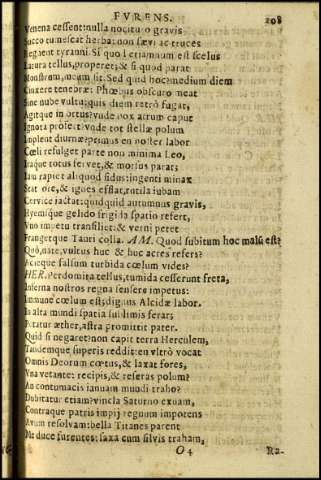 FVRENS. 208
Venena cessent: nulla nocituro gravis
Succo tumescat herba: non sævi ac truces
Regnent tyranni. Si quod etiamnum est scelus
Latura tellus, properet; & si quod parat
Monstrum, meum sit. Sed quid hoc? medium diem
Cinxere tenebræ: Phœbus obscuro meat
Sine nube vultu: quis diem retrò fugat,
Agitque in ortus? vnde nox atrum caput
Ignota profert? vnde tot stellæ polum
Implent diurnæ? primus en noster labor
Cœli refulget parte non minima Leo,
Iraque totus fervet, & morsus parat:
Iam rapiet aliquod sidus: ingenti minax
Stat ore, & ignes efflat, rutila iubam
Cervice iactat: quidquid autumnus gravis,
Hyemsque gelido frigida spatio refert,
Vno impetu transiliet: & verni petet
Frangetque Tauri colla. AM. Quod subitum hoc malū est?
Quò, nate, vultus huc & huc acres refers?
Acieque falsum turbida cœlum vides?
HER. Perdomita tellus, tumida cesserunt freta,
Inferna nostros regna sensere impetus:
Immune cœlum est; dignus Alcidæ labor.
In alta mundi spatia sublimis ferar;
Petatur æther, astra promittit pater.
Quid si negaret? non capit terra Herculem,
Tandemque superis reddit: en vltrò vocat
Omnis Deorum cœtus, & laxat fores,
Vna vetante: recipis, & reseras polum?
An contumacis ianuam mundi traho?
Dubitatur etiam? vincla Saturno exuam,
Contraque patris impij regnum impotens
Avum resolvam: bella Titanes parent
Me duce furentes: saxa cum silvis traham,
O 4 Ra-